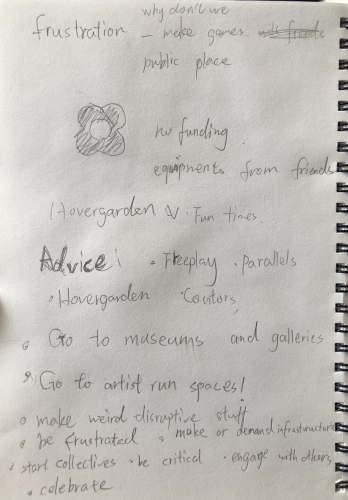 why don't we
frustration – make games
public place
no funding.
equipments from friends
Hovergarden V. Fun times.
Advice: • Freeplay • Parallels
• Hovergarden • Contors
• Go to museums and galleries
• Go to artist run spaces!
• make weird disruptive stuff
• be frustrated • make or demand infrastructure
• start collectives • be critical • engage with others
• celebrate